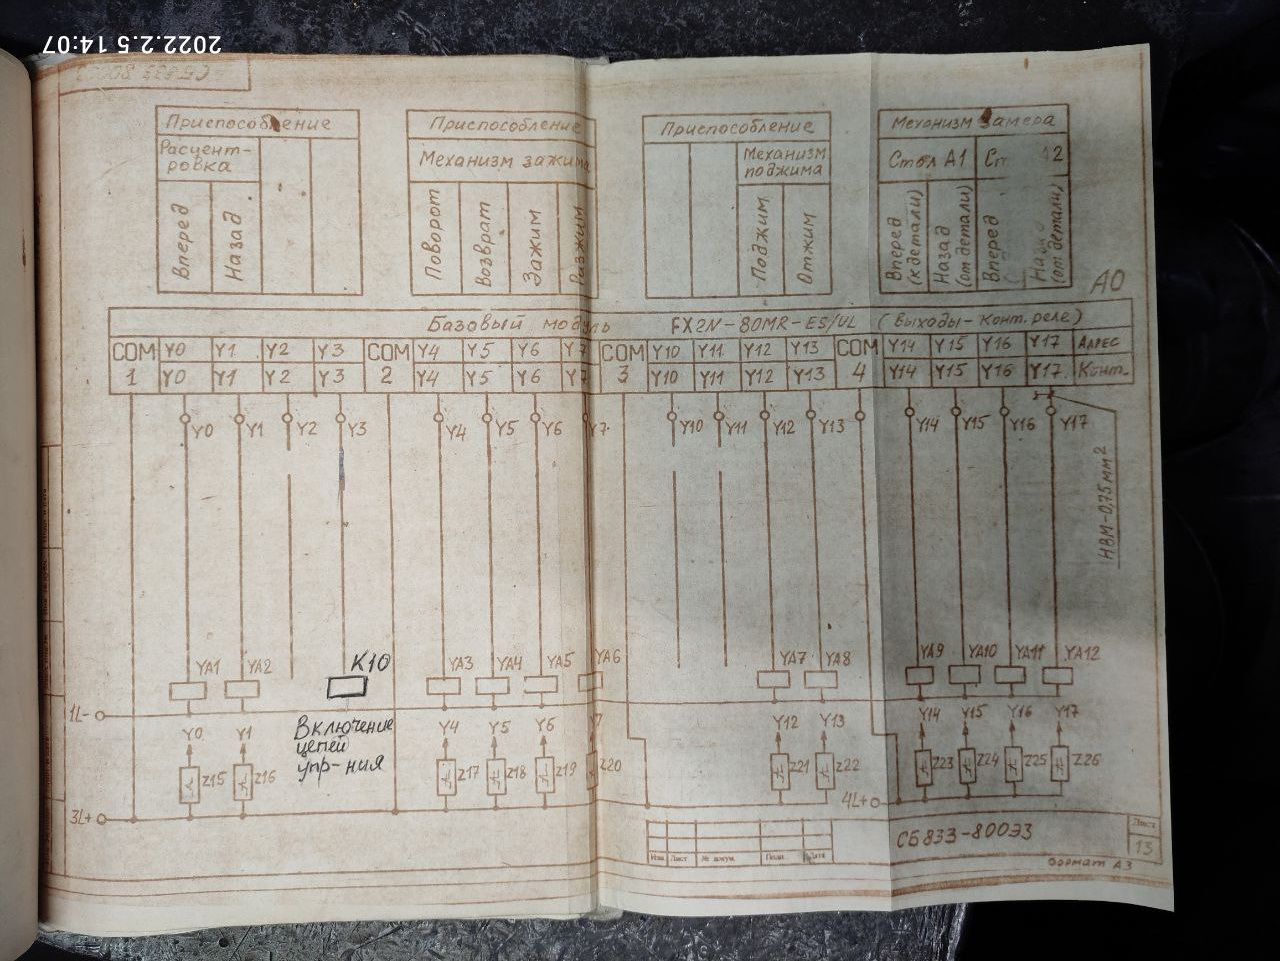 2022.2.5 14:07
Приспособление
Расцент-
ровка
Вперед
Назад
Приспособление
Механизм зажима
Поворот
Возврат
Зажим
Разжим
Приспособление
Механизм
поджима
Поджим
Отжим
Механизм замера
Стол А1
Вперед
(к детали)
Назад
(от детали)
Вперед
(от детали)
А0
Базовый модуль FX2N-80MR-ES/UL (Выходы-конт. реле)
COM Y0 Y1 Y2 Y3 COM Y4 Y5 Y6 Y7 COM Y10 Y11 Y12 Y13 COM Y14 Y15 Y16 Y17 Адрес
1 Y0 Y1 Y2 Y3 2 Y4 Y5 Y6 Y7 3 Y10 Y11 Y12 Y13 4 Y14 Y15 Y16 Y17 Конт.
Y0 Y1 Y2 Y3 Y4 Y5 Y6 Y7 Y10 Y11 Y12 Y13 Y14 Y15 Y16 Y17
НВМ-0,75мм²
YA1 YA2 K10 YA3 YA4 YA5 YA6 YA7 YA8 YA9 YA10 YA11 YA12
1L-
Включение
цепей
упр-ния
Y0 Y1 Y4 Y5 Y6 Y7 Y12 Y13 Y14 Y15 Y16 Y17
Z15 Z16 Z17 Z18 Z19 Z20 Z21 Z22 Z23 Z24 Z25 Z26
3L+
4L+
СБ833-800Э3
Лист
13
Изм. Лист № докум. Подп. Дата
Формат А3